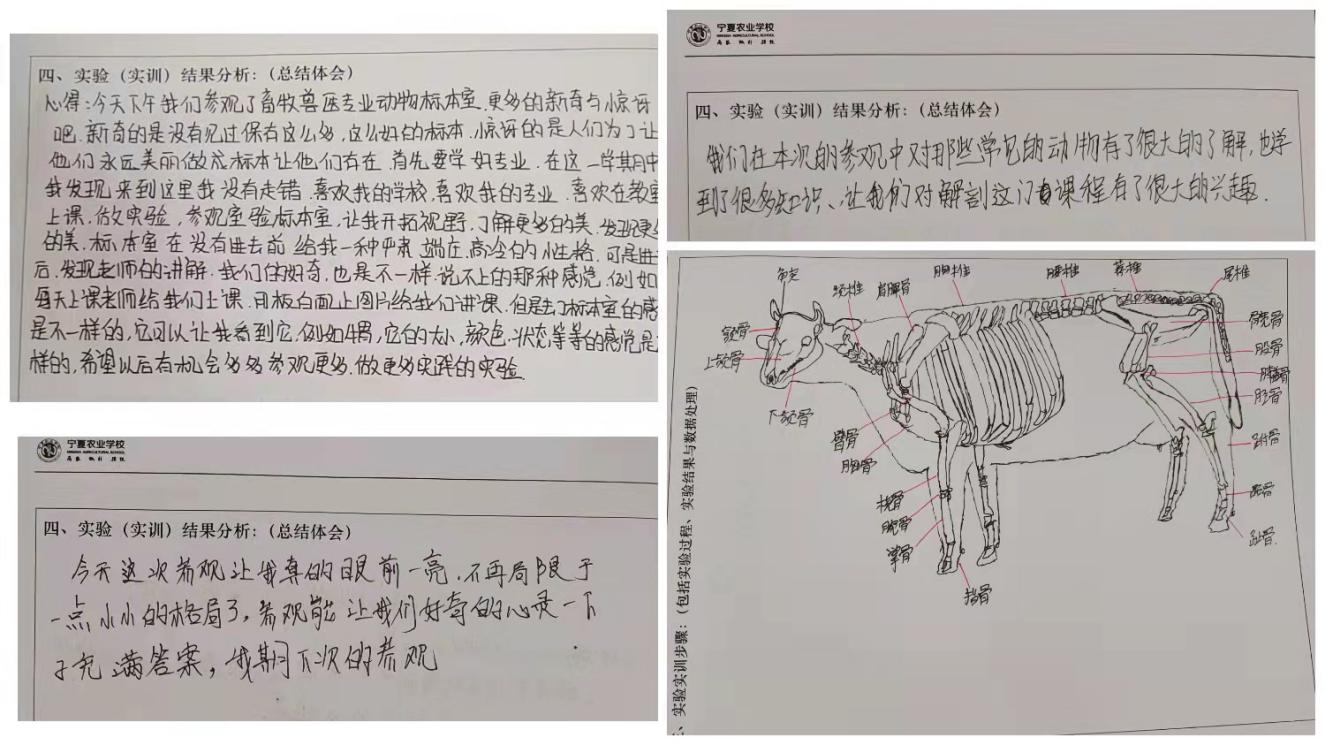 四、实验（实训）结果分析：（总结体会）
心得:今天下午我们参观了畜牧兽医专业动物标本室.更多的新奇与惊讶
吧.新奇的是没有见过保存这么多,这么好的标本.惊讶的是人们为了让
他们永远美丽做成标本让他们存在.首先要学好专业.在这一学期中
我发现来到这里我没有走错.喜欢我的学校,喜欢我的专业.喜欢在教室
上课.做实验,参观室验标本室,让我开拓视野,了解更多的美.发现更多
的美.标本室在没有进去前给我一种严肃端庄.高冷的小性格.可是进
后.发现老师的讲解.我们的好奇,也是不一样.说不上的那种感觉.例如
每天上课老师给我们上课.用板白面上图片给我们讲课.但是去了标本室的感
是不一样的,它可以让我看到它.例如牛胃,它的大小,颜色.状态等等的感觉是
样的,希望以后有机会多多参观更多.做更多实践的实验.
宁夏农业学校
NINGXIA AGRICULTURAL SCHOOL
四、实验（实训）结果分析：（总结体会）
我们在本次的参观中对那些常见的动物有了很大的了解,也学
到了很多知识、让我们对解剖这门课程有了很大的兴趣.
宁夏农业学校
NINGXIA AGRICULTURAL SCHOOL
四、实验（实训）结果分析：（总结体会）
今天这次参观让我真的眼前一亮.不再局限于
一点小小的格局了,参观能让我们好奇的心灵一下
子充满答案,我期下次的参观
实验实训步骤：（包括实验过程、实验结果与数据处理）
角突
颈椎
肩胛骨
胸椎
腰椎
荐椎
尾椎
额骨
上颌骨
下颌骨
臂骨
胸骨
桡骨
腕骨
掌骨
指骨
髋骨
股骨
膝盖骨
胫骨
跗骨
跖骨
趾骨.